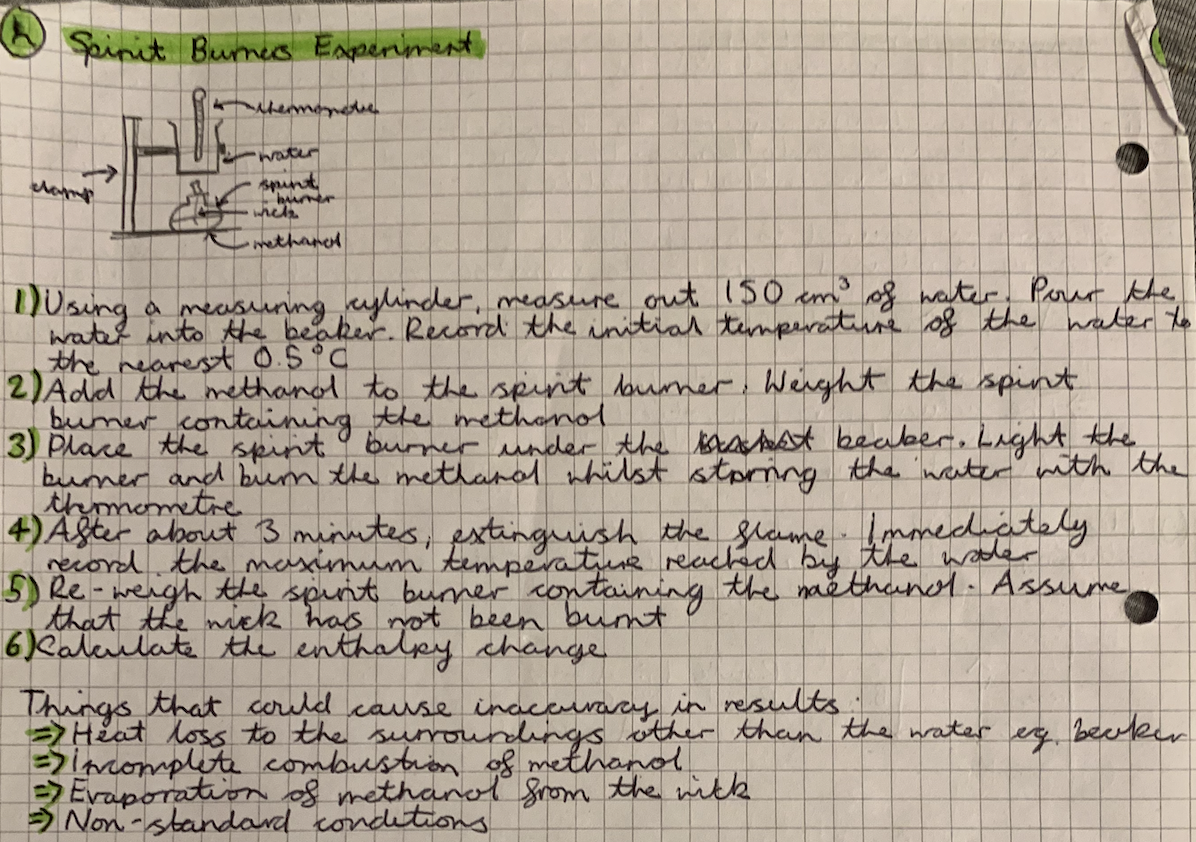 A Spirit Burners Experiment
thermometre
water
clamp
spirit
burner
wick
methanol
1) Using a measuring cylinder, measure out 150 cm³ of water. Pour the
water into the beaker. Record the initial temperature of the water to
the nearest 0.5°C
2) Add the methanol to the spirit burner. Weight the spirit
burner containing the methanol
3) Place the spirit burner under the beaker. Light the
burner and burn the methanol whilst stirring the water with the
thermometre
4) After about 3 minutes, extinguish the flame. Immediately
record the maximum temperature reached by the water
5) Re-weigh the spirit burner containing the methanol. Assume
that the wick has not been burnt
6) Calculate the enthalpy change
Things that could cause inaccuracy in results:
⇒ Heat loss to the surroundings other than the water eg. beaker
⇒ Incomplete combustion of methanol
⇒ Evaporation of methanol from the wick
⇒ Non-standard conditions